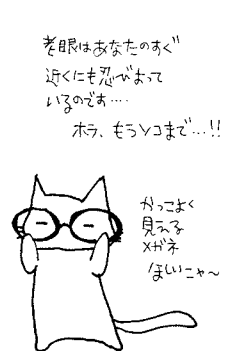 老眼はあなたのすぐ
近くにも忍びよって
いるのです‥‥
ホラ、もうソコまで…!!
かっこよく
見える
メガネ
ほしいニャ〜